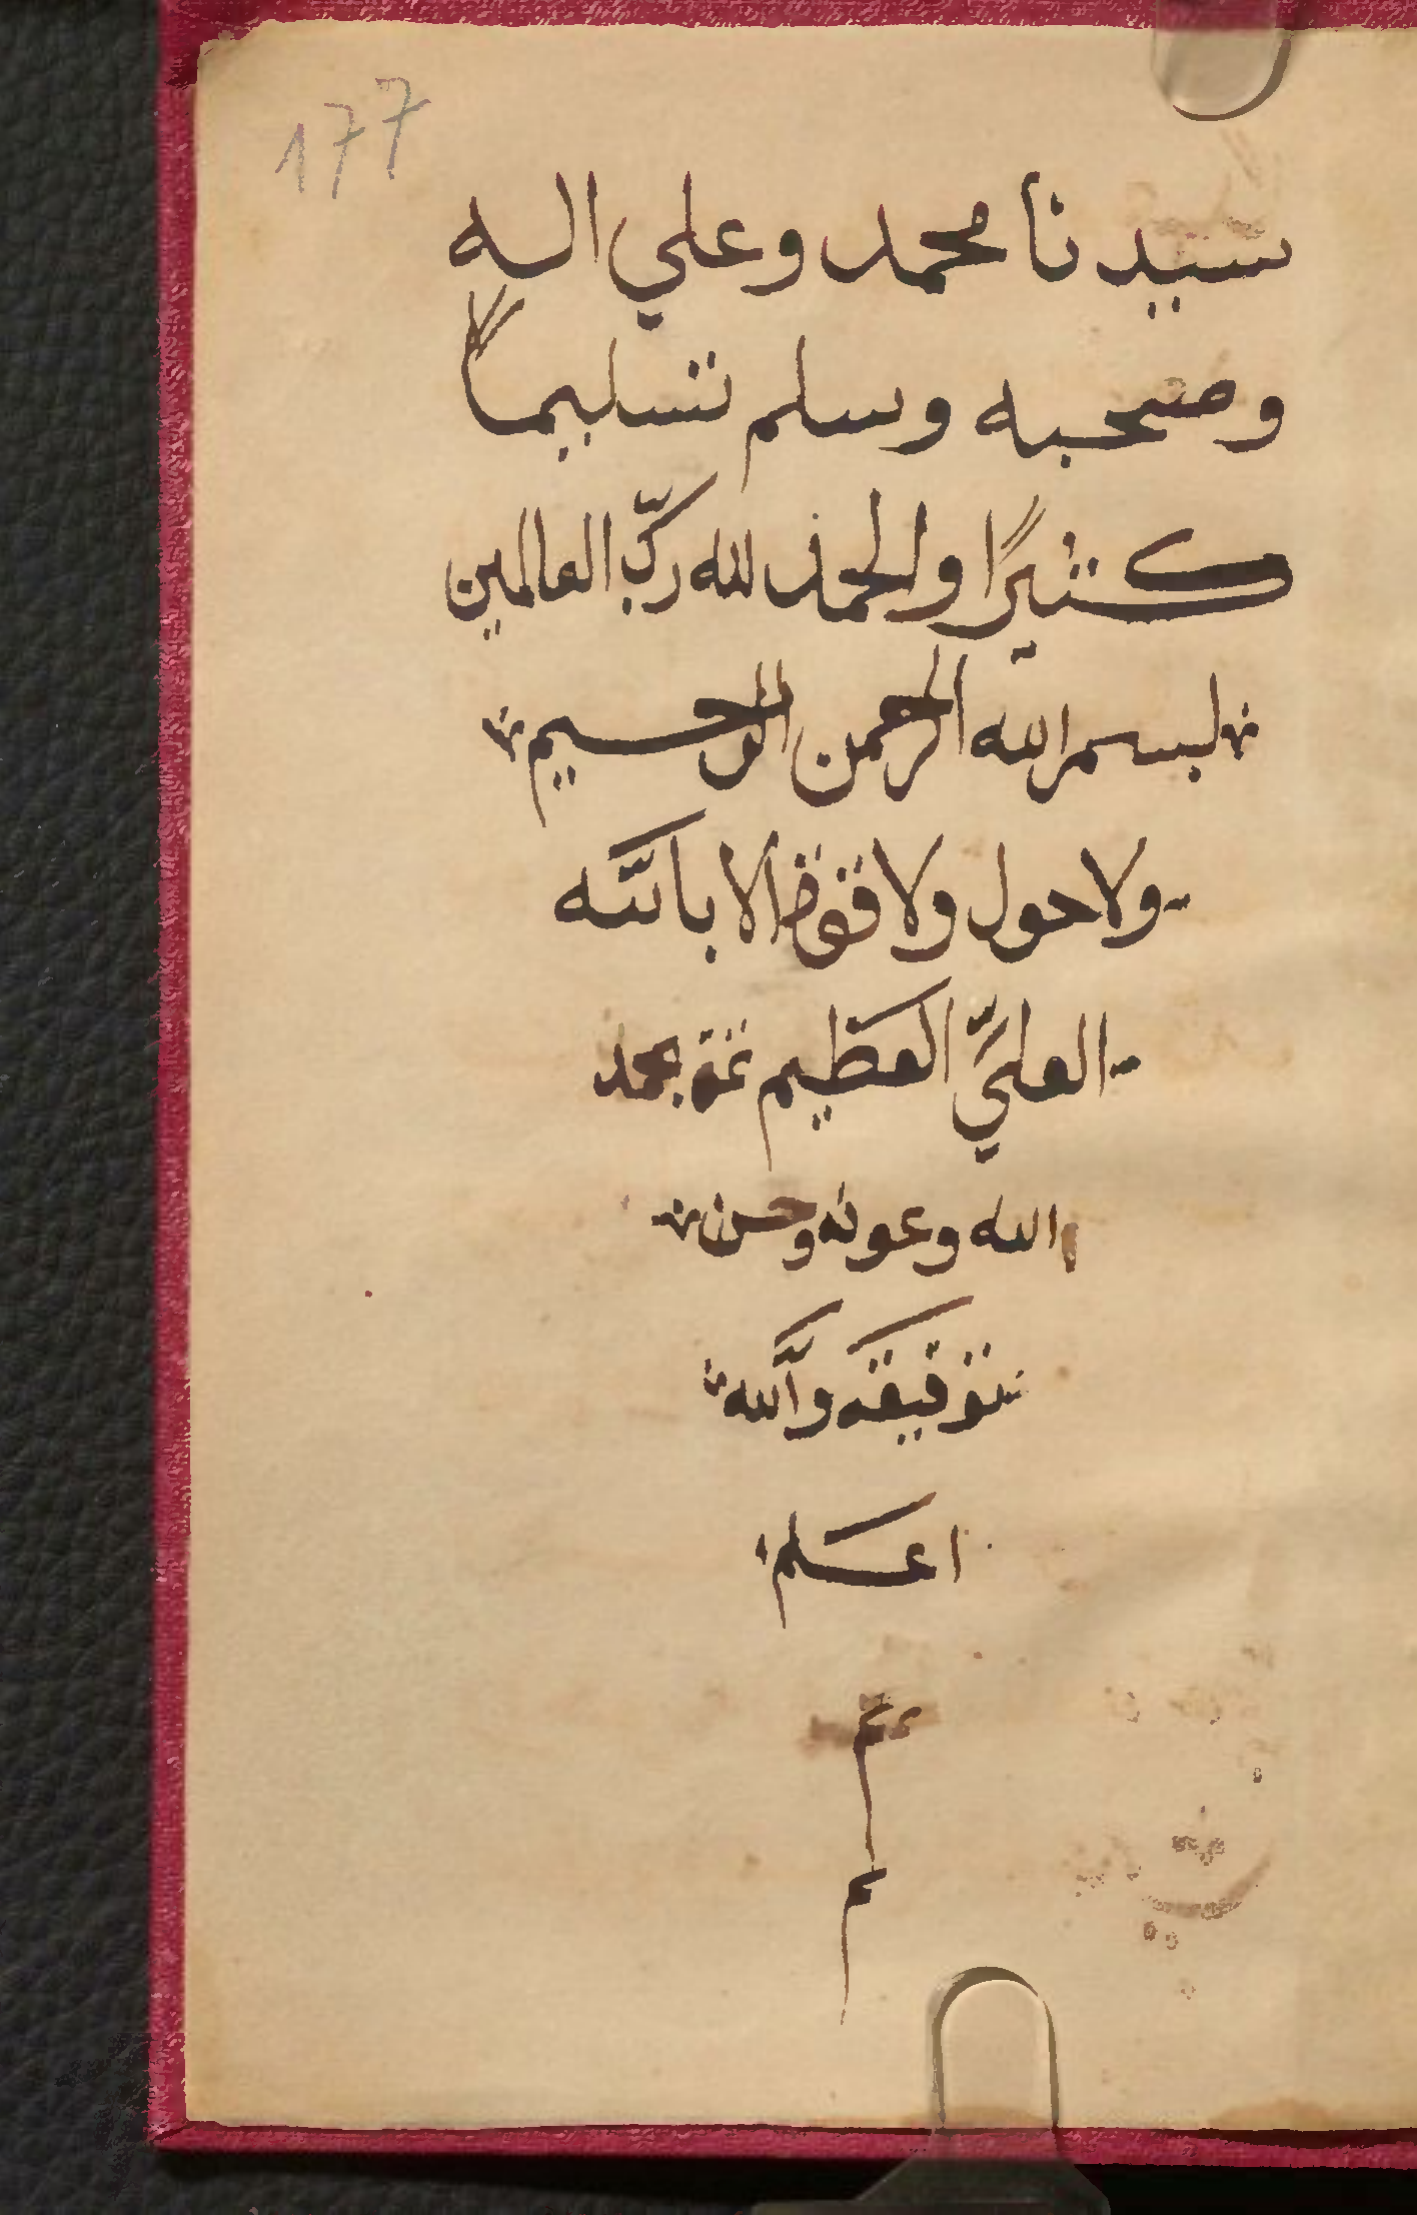 177
سيدنا محمد وعلي اله
وصحبه وسلم تسليماً
كثيرًا والحمد لله ربّ العالمين
بسم الله الرحمن الرحيم
ولا حول ولا قوة الا بالله
العليّ العظيم تمة بحمد
الله وعونه وحسن
توفيقه والله
اعلم
م
م